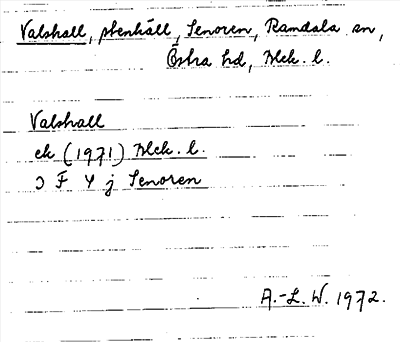 Valshall, stenhäll, Senoren, Ramdala sn,
Östra hd, Blek. l.
Valshall
ek (1971) Blek. l.
Ɔ F Y j Senoren
A.-L. W. 1972.